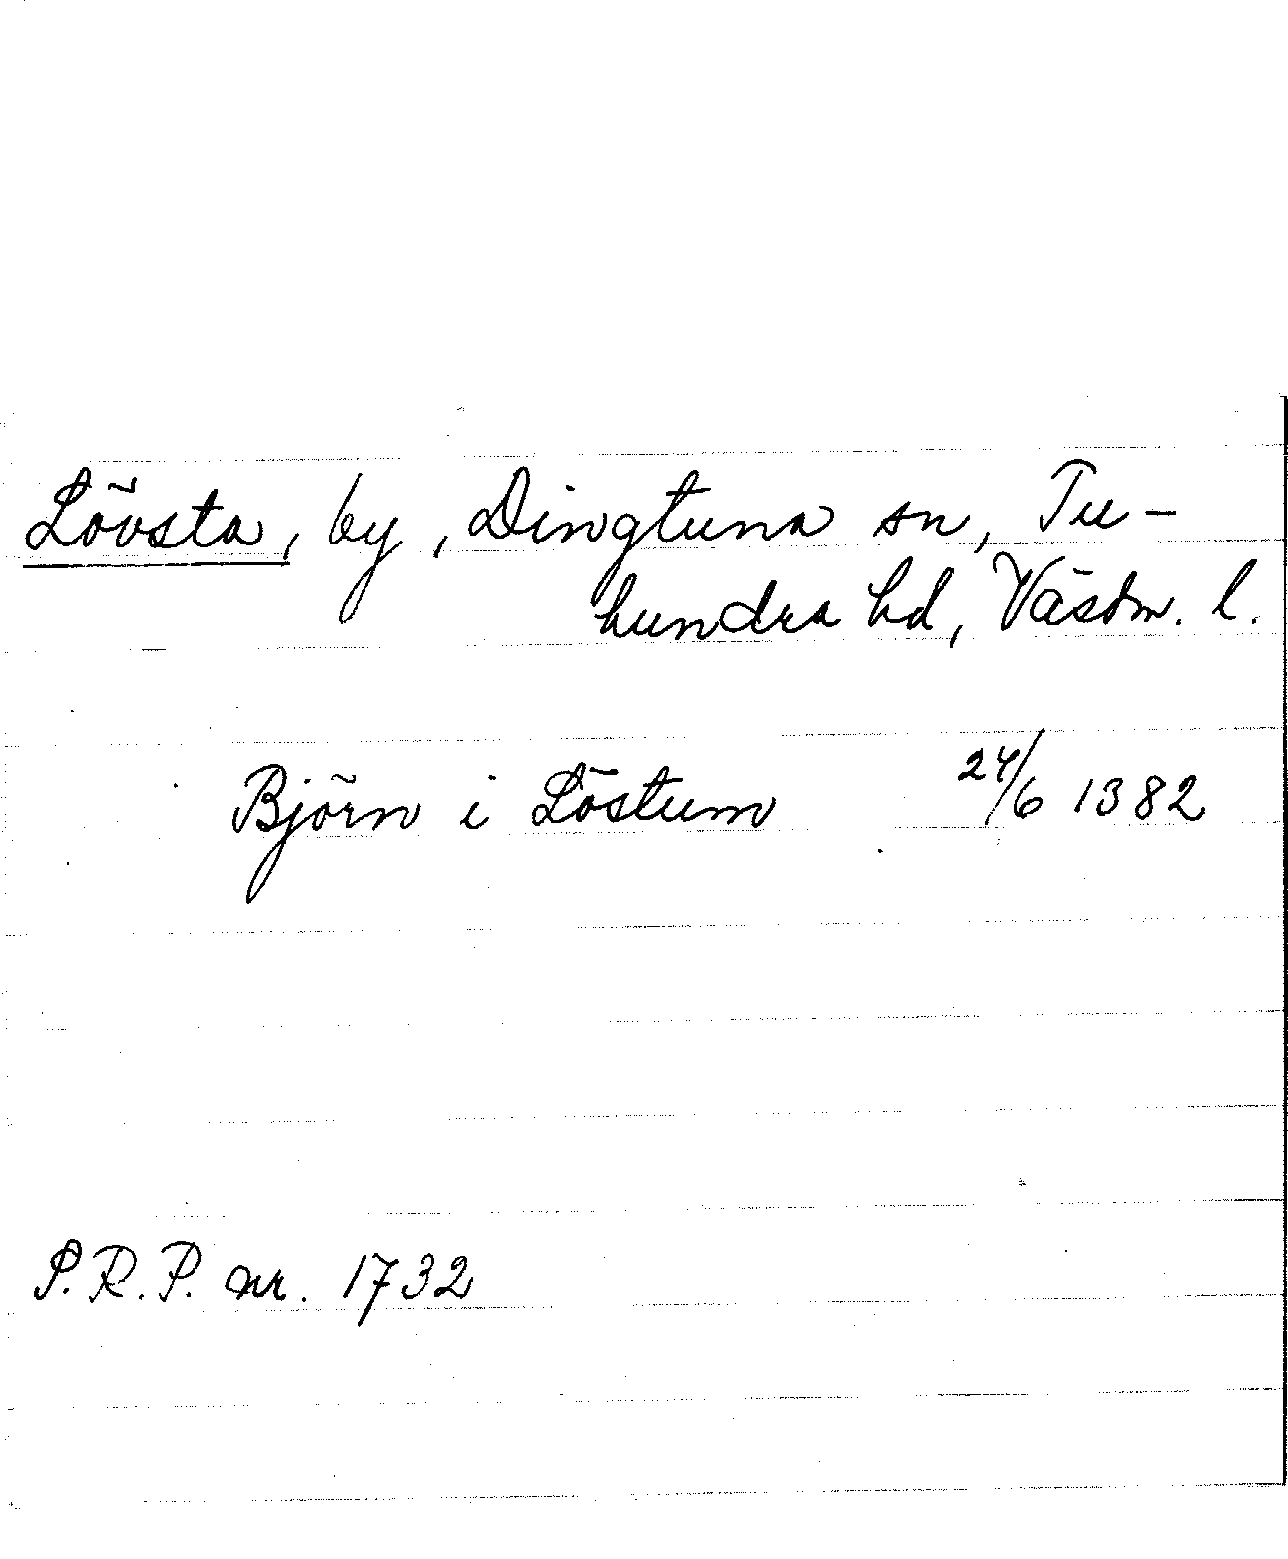 Lövsta, by, Dingtuna sn, Tu-
hundra hd, Västm. l.
Björn i Löstum 24/6 1382
S.R.P. nr. 1732